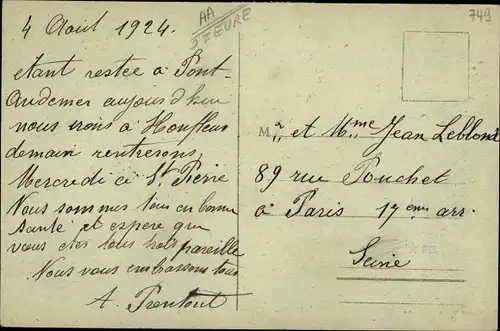 4 Août 1924.
AA
27 EURE
749
etant restée à Pont-
Audemer aujourd'hui
nous irons à Honfleur
demain rentrerons,
Mercredi à St Pierre
Nous sommes tous en bonne
santé et espere que
vous etes tous pareille
Nous vous embrassons tous
A. Prentout
M. et Mme Jean Leblond
89 rue Pouchet
à Paris 17eme arr.
Seine